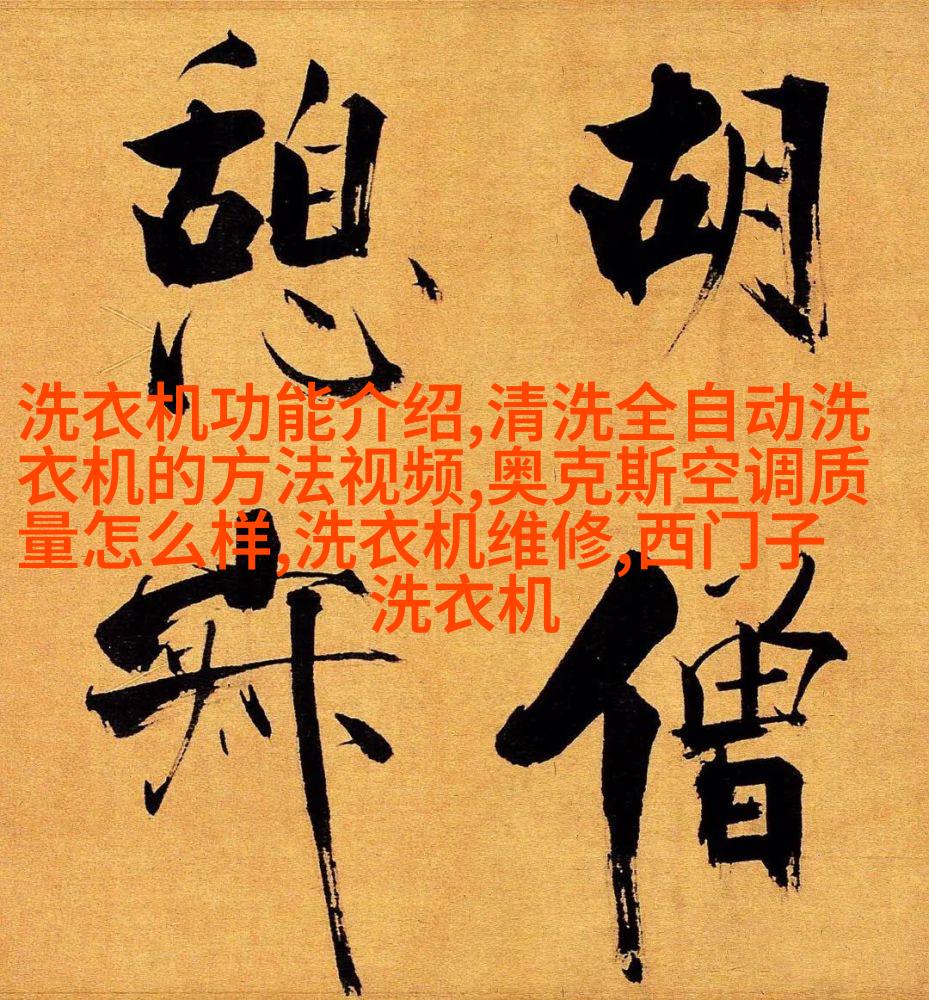 胡僧
憩寂
洗衣机功能介绍,清洗全自动洗
衣机的方法视频,奥克斯空调质
量怎么样,洗衣机维修,西门子
洗衣机